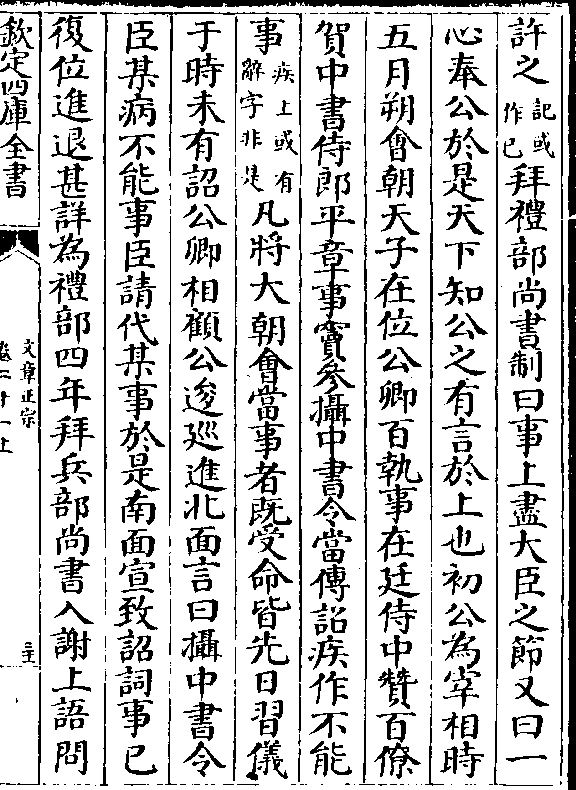 許之記或作已拜禮部尚書制曰事上盡大臣之節又曰一
心奉公於是天下知公之有言於上也初公為宰相時
五月朔會朝天子在位公卿百執事在廷侍中贊百僚
賀中書侍郎平章事竇參攝中書令當傳詔疾作不能
事疾上或有辭字非是凡將大朝會當事者既受命皆先日習儀
于時未有詔公卿相顧公逡廵進北面言曰攝中書令
臣某病不能事臣請代某事於是南面宣致詔詞事已
復位進退甚詳為禮部四年拜兵部尚書入謝上語問
欽定四庫全書
文章正宗
卷二十一上